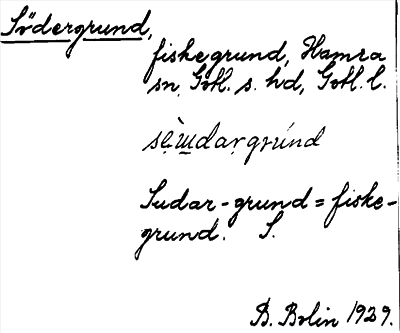 Södergrund,
fiskegrund, Hamra
sn, Gotl. s. hd, Gotl. l.
Sudar-grund = fiske-
grund. S.
B. Bolin 1929.